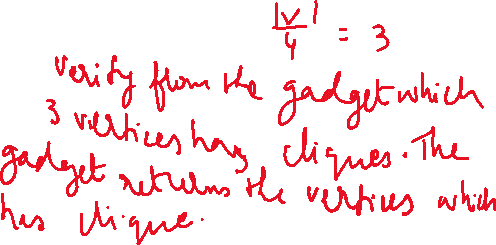 |V|/4 = 3
Verify from the gadget which
3 vertices has cliques. The
gadget returns the vertices which
has clique.